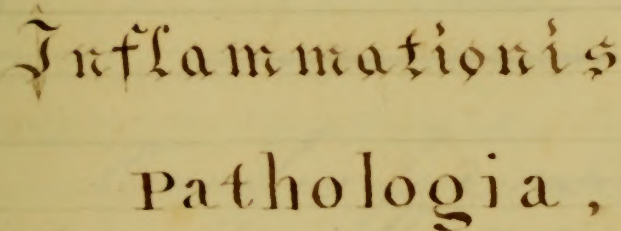 Inflammationis
Pathologia,